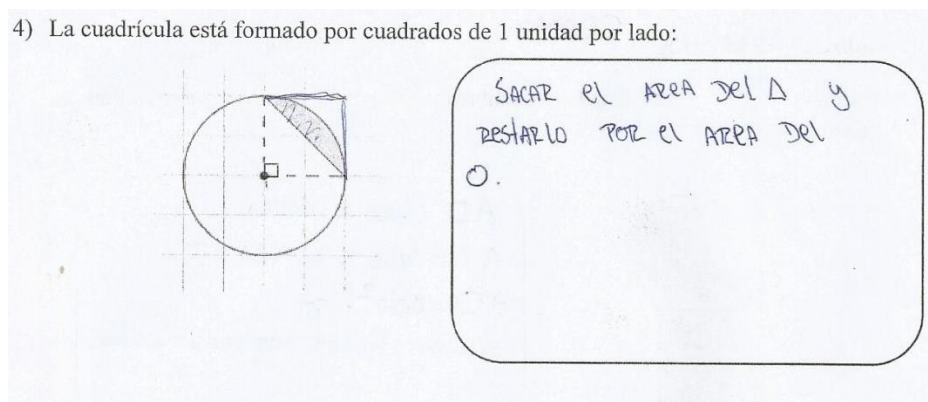 4) La cuadrícula está formado por cuadrados de 1 unidad por lado:
SACAR el AREA Del Δ y
RESTARLO POR el AREA Del
O.